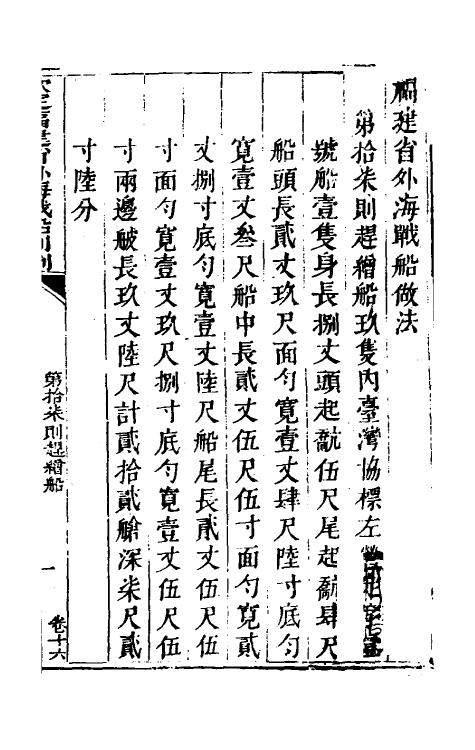 福建省外海戰船做法
第拾柒則趕繒船玖隻內臺灣協標左營
號船壹隻身長捌丈頭起翹伍尺尾起翹肆尺
船頭長貳丈玖尺面勻寬壹丈肆尺陸寸底勻
寬壹丈叁尺船中長貳丈伍尺伍寸面勻寬貳
丈捌寸底勻寬壹丈陸尺船尾長貳丈伍尺伍
寸面勻寬壹丈玖尺捌寸底勻寬壹丈伍尺伍
寸兩邊舨長玖丈陸尺計貳拾貳艙深柒尺貳
寸陸分
欽定福建省外海戰船則例
第拾柒則趕繒船
一
卷十六